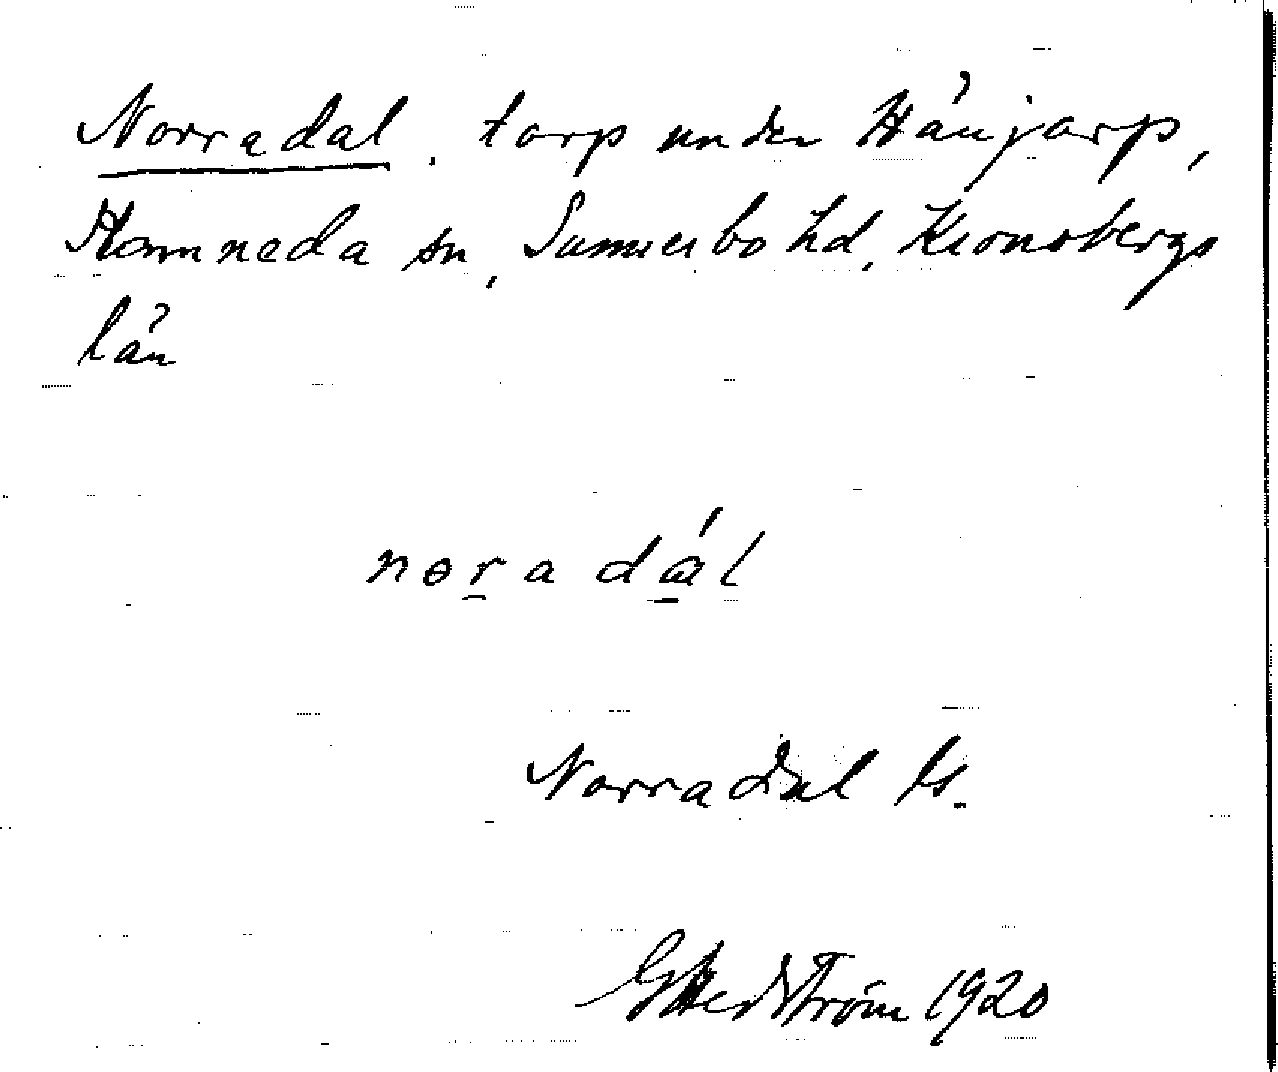 Norradal. torp under Hånjarp,
Hamneda sn, Sunnerbo hd, Kronobergs
län
nɵradál
Norradal ls.
G Hedström 1920